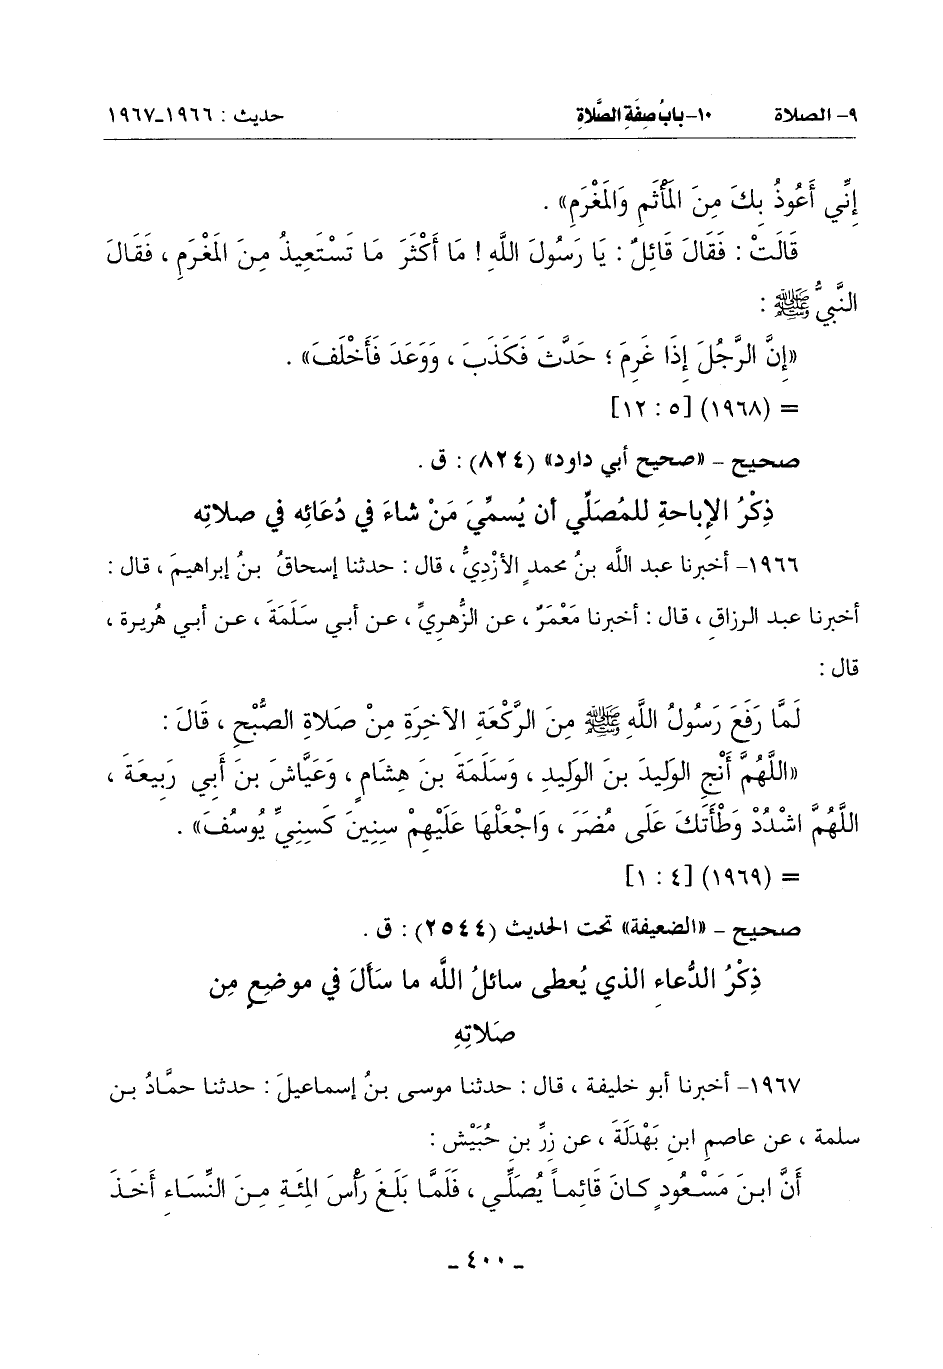 ٩- الصلاة ١٠- بابُ صِفَةِ الصَّلاةِ حديث : ١٩٦٦-١٩٦٧
إِنِّي أَعُوذُ بِكَ مِنَ المَأْثَمِ وَالمَغْرَمِ» .
قَالَتْ : فَقَالَ قَائِلٌ : يَا رَسُولَ اللَّهِ ! مَا أَكْثَرَ مَا تَسْتَعِيذُ مِنَ المَغْرَمِ ، فَقَالَ
النَّبيُّ ﷺ :
«إِنَّ الرَّجُلَ إِذَا غَرِمَ ؛ حَدَّثَ فَكَذَبَ ، وَوَعَدَ فَأَخْلَفَ» .
= (١٩٦٨) [٥ : ١٢]
صحيح - «صحيح أبي داود» (٨٢٤) : ق .
ذِكْرُ الإباحةِ للمُصَلِّي أن يُسمِّيَ مَنْ شاءَ في دُعَائِه في صلاتِه
١٩٦٦- أخبرنا عبد اللَّه بنُ محمدٍ الأزْديُّ ، قال : حدثنا إسحاقُ بنُ إبراهيمَ ، قال :
أخبرنا عبد الرزاقِ ، قال : أخبرنا مَعْمَرٌ ، عن الزُّهريِّ ، عن أبي سَلَمَةَ ، عن أبي هُريرة ،
قال :
لَمَّا رَفَعَ رَسُولُ اللَّهِ ﷺ مِنَ الرَّكْعَةِ الآخِرَةِ مِنْ صَلاةِ الصُّبْحِ ، قَالَ :
«اللَّهُمَّ أَنْجِ الوَلِيدَ بنَ الوَلِيدِ ، وَسَلَمَةَ بنَ هِشَامٍ ، وَعَيَّاشَ بنَ أَبي رَبِيعَةَ ،
اللَّهُمَّ اشْدُدْ وَطْأَتَكَ عَلَى مُضَرَ ، وَاجْعَلْهَا عَلَيْهِمْ سِنِينَ كَسِنِيِّ يُوسُفَ» .
= (١٩٦٩) [٤ : ١]
صحيح - «الضعيفة» تحت الحديث (٢٥٤٤) : ق .
ذِكْرُ الدُّعاءِ الذي يُعطى سائلُ اللَّه ما سَأَلَ في موضِعٍ مِن
صَلاتِهِ
١٩٦٧- أخبرنا أبو خليفة ، قال : حدثنا موسى بنُ إسماعيلَ : حدثنا حمَّادُ بن
سلمة ، عن عاصمِ ابنِ بَهْدَلَةَ ، عن زِرِّ بنِ حُبَيْش :
أَنَّ ابنَ مَسْعُودٍ كانَ قَائِماً يُصَلِّي ، فَلَمَّا بَلَغَ رَأْسَ المِئَةِ مِنَ النِّسَاءِ أَخَذَ
- ٤٠٠ -